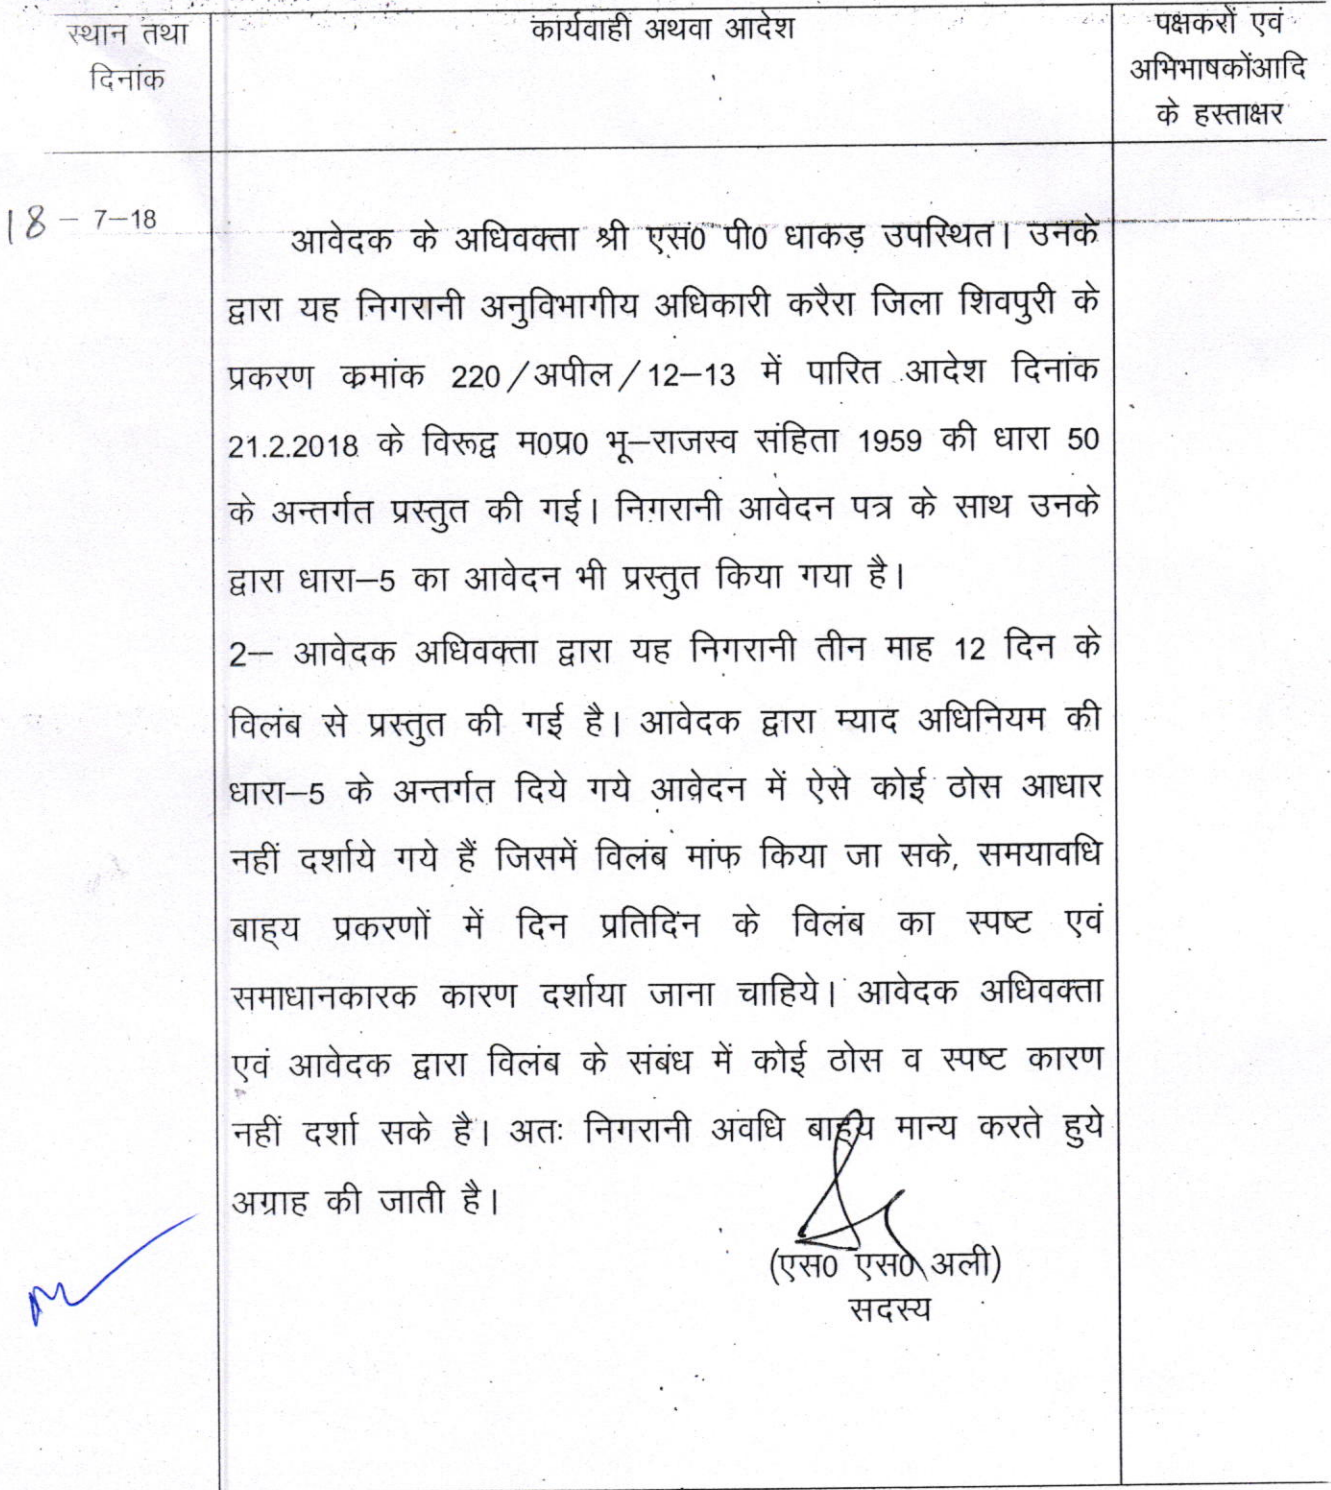 स्थान तथा
दिनांक
कार्यवाही अथवा आदेश
पक्षकारों एवं
अभिभाषकोंआदि
के हस्ताक्षर
18 – 7–18
आवेदक के अधिवक्ता श्री एस0 पी0 धाकड़ उपस्थित। उनके
द्वारा यह निगरानी अनुविभागीय अधिकारी करैरा जिला शिवपुरी के
प्रकरण कमांक 220/अपील/12–13 में पारित आदेश दिनांक
21.2.2018 के विरूद्व म0प्र0 भू–राजस्व संहिता 1959 की धारा 50
के अन्तर्गत प्रस्तुत की गई। निगरानी आवेदन पत्र के साथ उनके
द्वारा धारा–5 का आवेदन भी प्रस्तुत किया गया है।
2– आवेदक अधिवक्ता द्वारा यह निगरानी तीन माह 12 दिन के
विलंब से प्रस्तुत की गई है। आवेदक द्वारा म्याद अधिनियम की
धारा–5 के अन्तर्गत दिये गये आवेदन में ऐसे कोई ठोस आधार
नहीं दर्शाये गये हैं जिसमें विलंब मांफ किया जा सके, समयावधि
बाह्य प्रकरणों में दिन प्रतिदिन के विलंब का स्पष्ट एवं
समाधानकारक कारण दर्शाया जाना चाहिये। आवेदक अधिवक्ता
एवं आवेदक द्वारा विलंब के संबंध में कोई ठोस व स्पष्ट कारण
नहीं दर्शा सके है। अतः निगरानी अवधि बाह्य मान्य करते हुये
अग्राह की जाती है।
(एस0 एस0 अली)
सदस्य